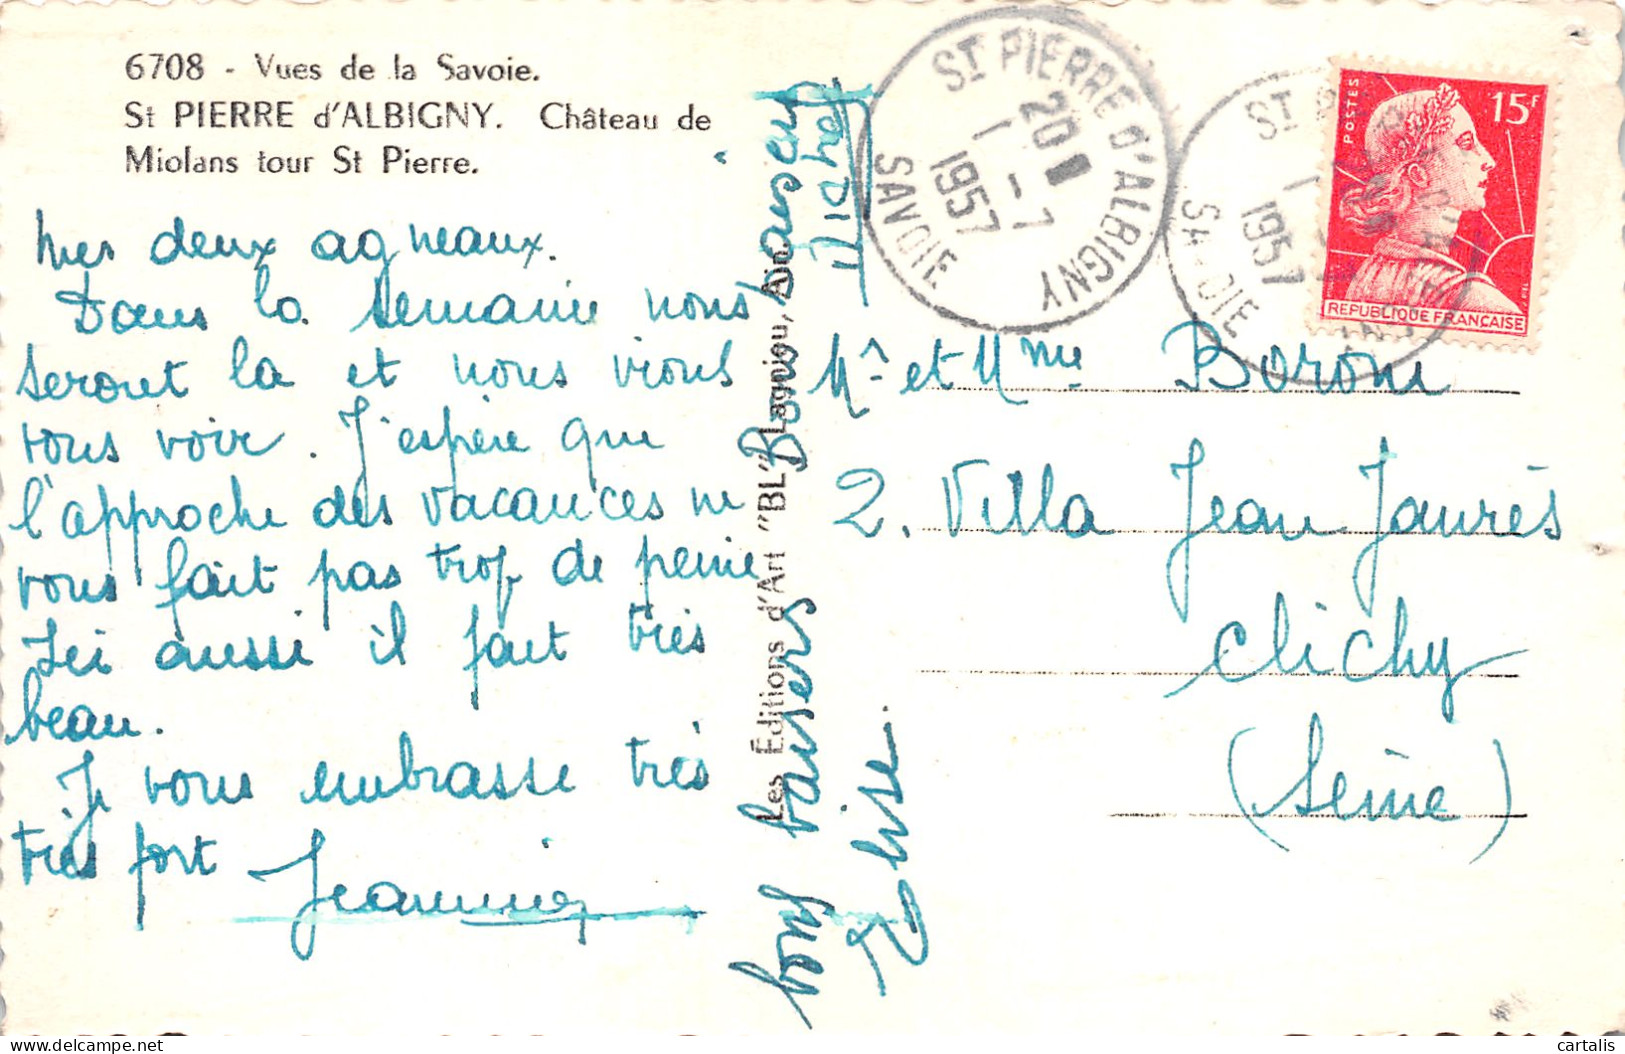 6708 - Vues de la Savoie.
St PIERRE d'ALBIGNY. Château de
Miolans tour St Pierre.
Mes deux agneaux.
Dans la semaine nous
seront la et nous virons
vous voir. J'espère que
l'approche des vacances ne
vous fait pas trop de peine
Ici aussi il fait très
beau.
Je vous embrasse très
très fort Jeannine
Les Editions d'Art "BL" Lagnieu, Ain.
Bons baisers
bons baisers
Elise.
ST PIERRE D'ALBIGNY
20
1 - 7
1957
SAVOIE
ST PIERRE D'ALBIGNY
1 - 7
1957
SAVOIE
POSTES
15F
REPUBLIQUE FRANÇAISE
Mr et Mme Borone
2. Villa Jean Jaurès
Clichy
(Seine)
cartalis